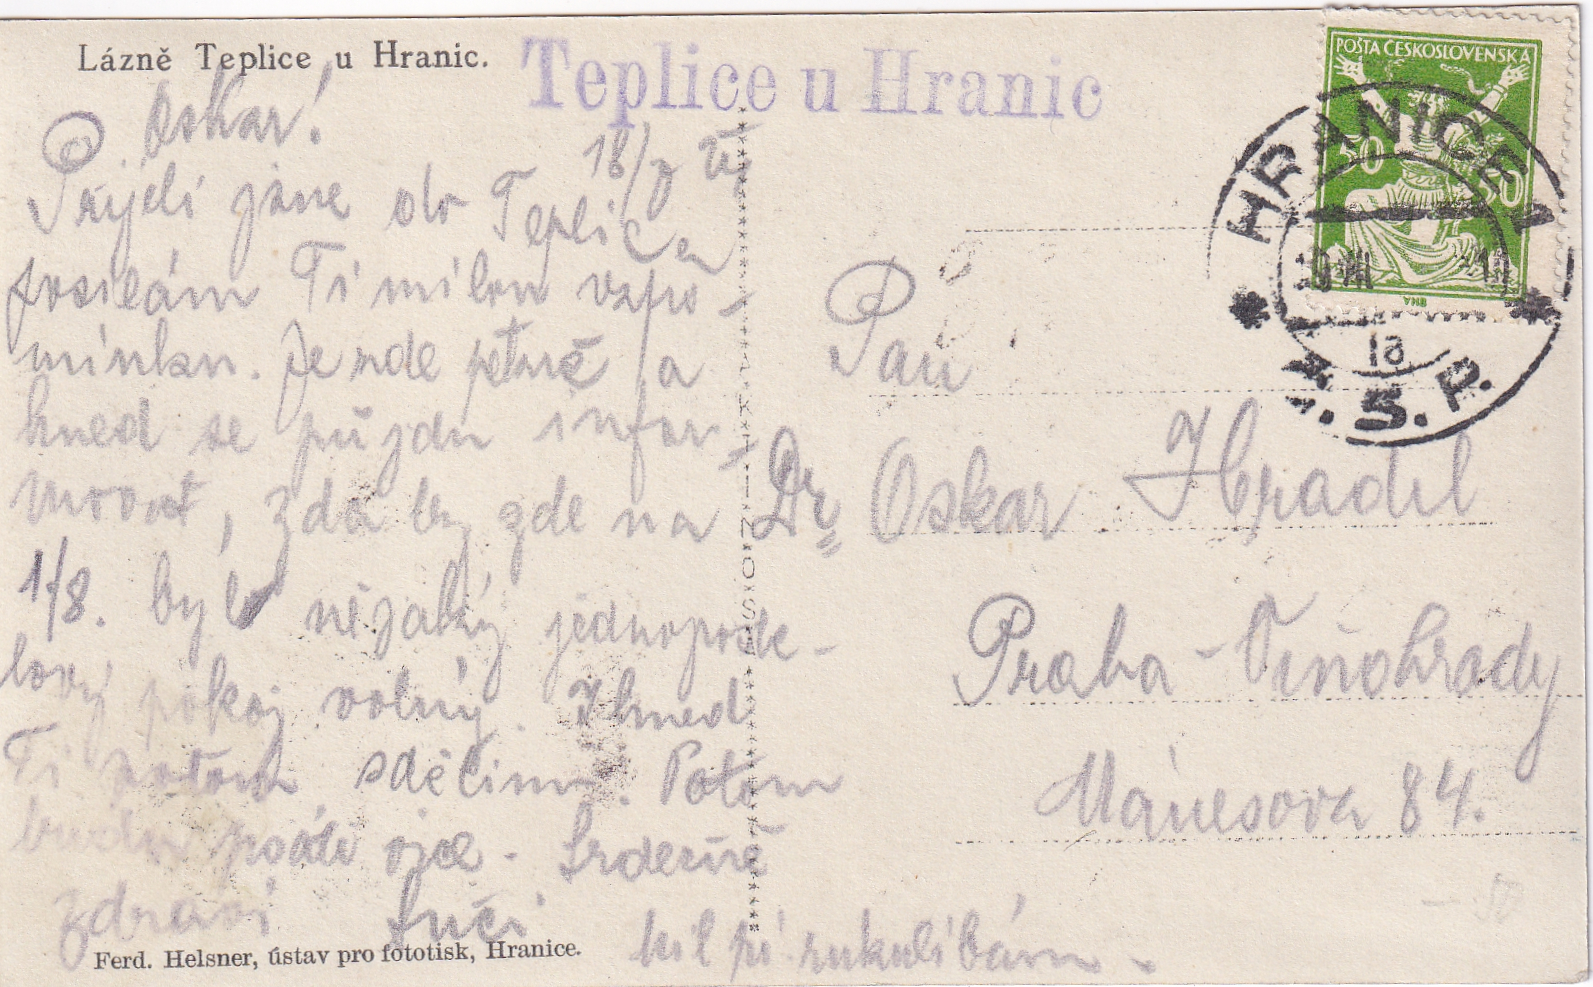 Lázně Teplice u Hranic.
Teplice u Hranic
POŠTA ČESKOSLOVENSKÁ
50 50
HRANICE 1
1a
Oskar!
18/7
Přijeli jsme do Teplic a
posílám Ti milou vzpo-
mínku. Je zde pěkně a
hned se půjdu infor-
movat, zda by zde na
1/8. bylo nějaký jednoposte-
lový pokoj volný. Ihned
Ti potom sdělím. Potom
budu psáti více. Srdečně
zdraví
Pan
Dr. Oskar Hradil
Praha-Vinohrady
Mánesova 84.
rukulíbám.
Ferd. Helsner, ústav pro fototisk, Hranice.